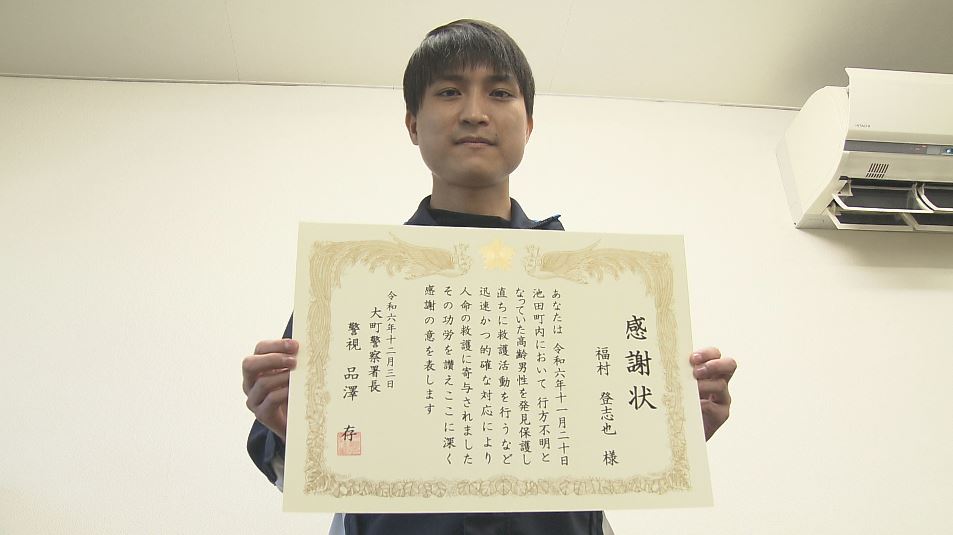 感謝状
福村 登志也 様
あなたは 令和六年十一月二十日
池田町内において 行方不明と
なっていた高齢男性を発見保護し
直ちに救護活動を行うなど
迅速かつ的確な対応により
人命の救護に寄与されました
その功労を讃えここに深く
感謝の意を表します
令和六年十二月三日
大町警察署長
警視 品澤 存
HITACHI